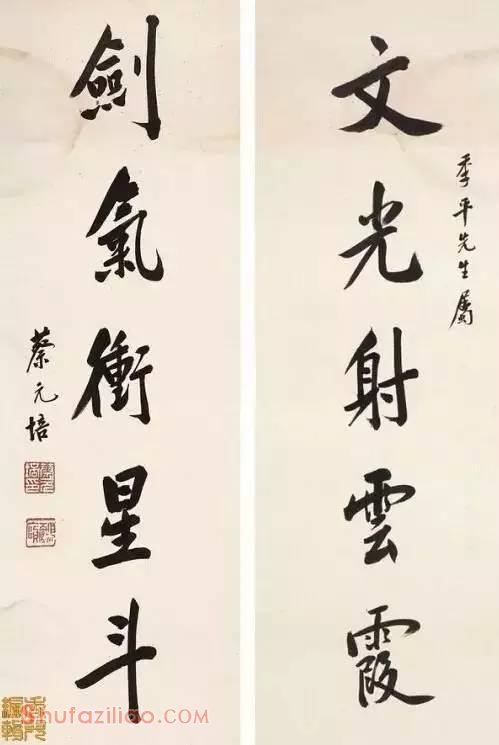 文光射雲霞
季平先生屬
劍氣衝星斗
蔡元培
Shufaziliao.com